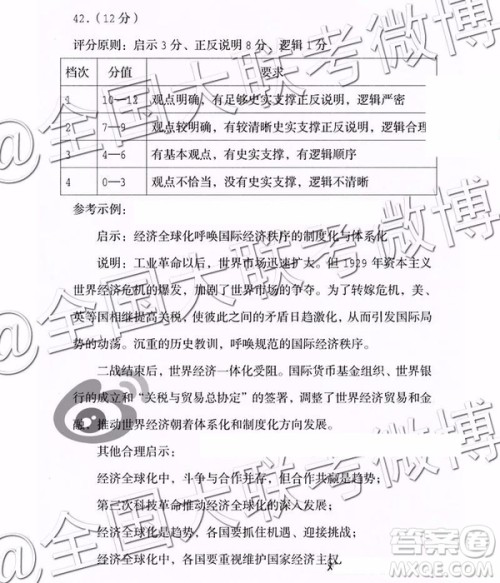 42.（12分）
评分原则：启示3分、正反说明8分、逻辑1分
档次 分值 要求
1 10—12 观点明确，有足够史实支撑正反说明，逻辑严密
2 7—9 观点较明确，有较清晰史实支撑正反说明，逻辑合理
3 4—6 有基本观点，有史实支撑，有逻辑顺序
4 0—3 观点不恰当，没有史实支撑，逻辑不清晰
参考示例：
启示：经济全球化呼唤国际经济秩序的制度化与体系化
说明：工业革命以后，世界市场迅速扩大。但1929年资本主义
世界经济危机的爆发，加剧了世界市场的争夺。为了转嫁危机，美、
英等国相继提高关税，使彼此之间的矛盾日趋激化，从而引发国际局
势的动荡。沉重的历史教训，呼唤规范的国际经济秩序。
二战结束后，世界经济一体化受阻。国际货币基金组织、世界银
行的成立和“关税与贸易总协定”的签署，调整了世界经济贸易和金
融，推动世界经济朝着体系化和制度化方向发展。
其他合理启示：
经济全球化中，斗争与合作并存，但合作共赢是趋势；
第三次科技革命推动经济全球化的深入发展；
经济全球化是趋势，各国要抓住机遇、迎接挑战；
经济全球化中，各国要重视维护国家经济主权
@全国大联考微博
@全国大联考微博
@全国大联考微博
答案圈
MXQE.COM